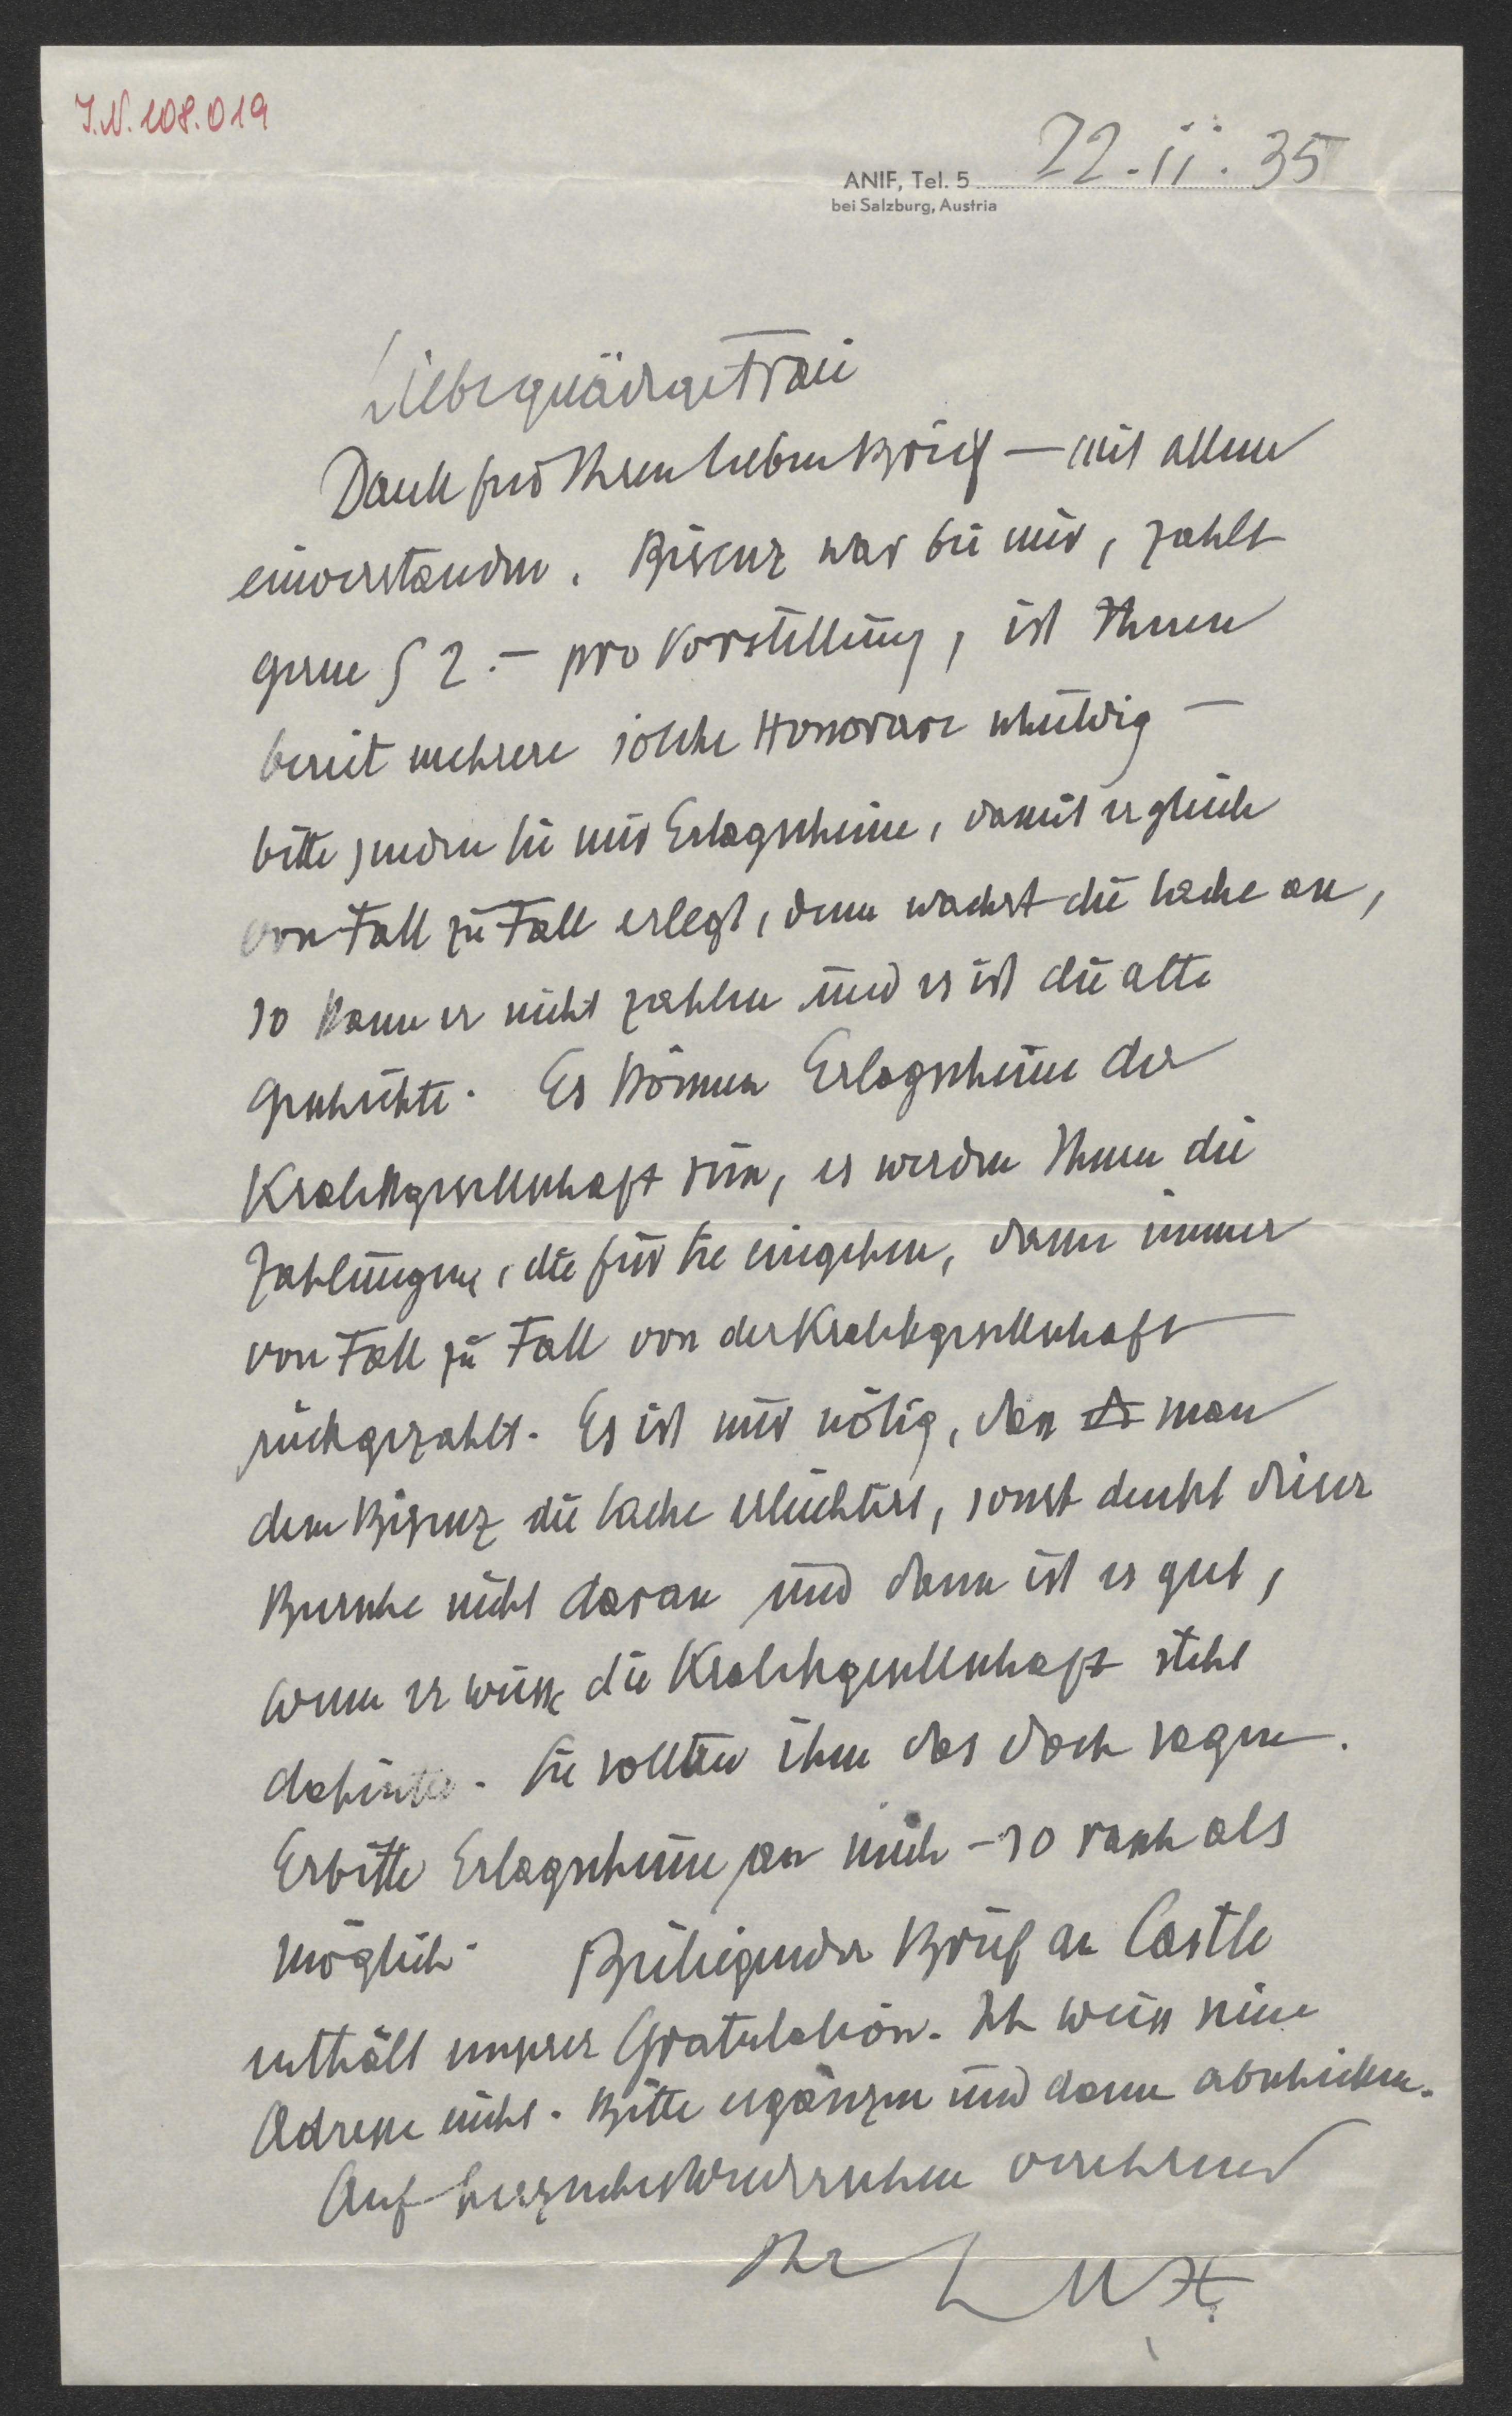 I.N. 108.019
22.ii.35
ANIF, Tel. 5
bei Salzburg, Austria
Liebe gnädige Frau
Dank für Ihren lieben Brief — mit allem
einverstanden. Bisenz war bei mir, zahlt
gerne S 2.– pro Vorstellung, ist Ihnen
bereit mehrere solche Honorare schuldig –
bitte senden Sie mir Erlagscheine, damit er gleich
von Fall zu Fall erlegt, denn wachst die Sache an,
so kann er nicht zahlen und es ist die alte
Geschichte. Es können Erlagscheine der
Kralikgesellschaft sein, es werden Ihnen die
Zahlungen, die für Sie eingehen, dann immer
von Fall zu Fall von der Kralikgesellschaft
rückgezahlt. Es ist nur nötig, dass man
dem Bisenz die Sache erleichtert, sonst denkt dieser
Bursche nicht daran und dann ist es gut,
wenn er weiss die Kralikgesellschaft steht
dahinter. Sie sollten ihm das doch sagen.
Erbitte Erlagscheine an mich – so rasch als
möglich. Beiliegender Brief an Castle
enthält unsere Gratulation. Ich weiss seine
Adresse nicht. Bitte ergänzen und dann abschicken.
Auf herzliches Wiedersehen verehrend
Ihr